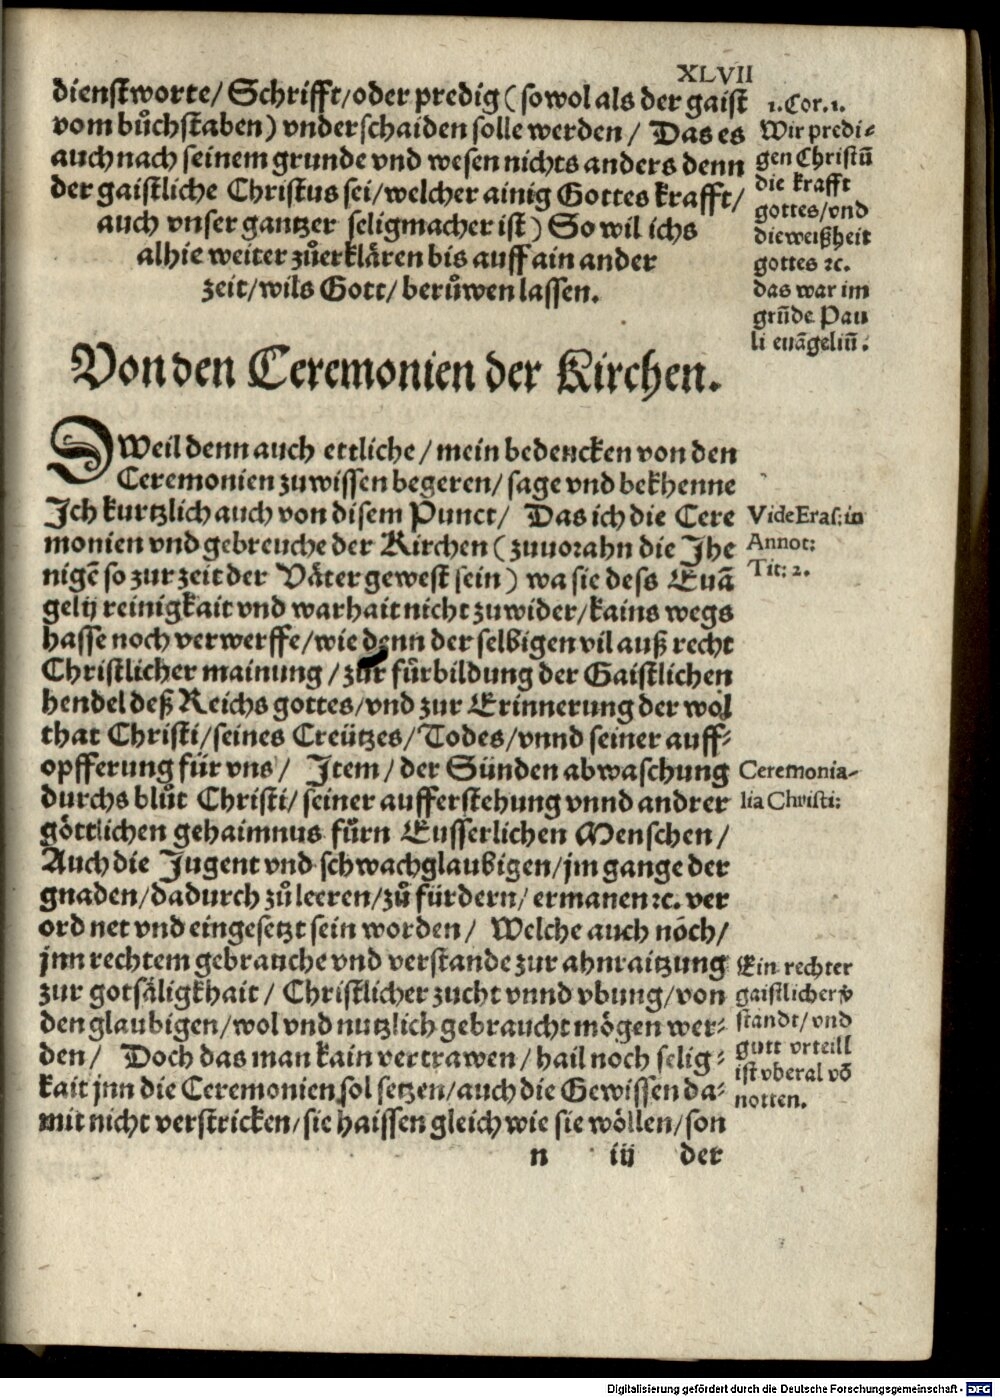 XLVII
dienstworte/ Schrifft/ oder predig ( sowol als der gaist
vom bůchstaben ) vnderschaiden solle werden / Das es
auch nach seinem grunde vnd wesen nichts anders denn
der gaistliche Christus sei/ welcher ainig Gottes krafft/
auch vnser gantzer seligmacher ist ) So wil ichs
alhie weiter zůerklären bis auff ain ander
zeit/ wils Gott/ berůwen lassen.
1. Cor. 1.
Wir predi-
gen Christũ
die krafft
gottes/ vnd
die weißheit
gottes ꝛc.
das war im
grũde Pau
li euãgeliũ.
Von den Ceremonien der Kirchen.
DWeil denn auch ettliche / mein bedencken von den
Ceremonien zuwissen begeren/ sage vnd bekhenne
Ich kurtzlich auch von disem Punct/ Das ich die Cere
monien vnd gebreuche der Kirchen ( zuuorahn die Jhe
nigẽ so zur zeit der Väter gewest sein ) wa sie dess Euã
gelij reinigkait vnd warhait nicht zuwider/ kains wegs
hasse noch verwerffe/ wie denn der selbigen vil auß recht
Christlicher mainung / zur fůrbildung der Gaistlichen
hendel deß Reichs gottes/ vnd zur Erinnerung der wol
that Christi/ seines Creützes/ Todes/ vnnd seiner auff-
opfferung für vns/ Item / der Sünden abwaschung
durchs blůt Christi/ seiner aufferstehung vnnd andrer
göttlichen gehaimnus fůrn Eusserlichen Menschen /
Auch die Jugent vnd schwachglaubigen/ jm gange der
gnaden/ dadurch zů leeren/ zů fürdern/ ermanen ꝛc. ver
ord net vnd eingesetzt sein worden / Welche auch nöch/
jnn rechtem gebrauche vnd verstande zur ahnraitzung
zur gotsäligkhait / Christlicher zucht vnnd vbung/ von
den glaubigen/ wol vnd nutzlich gebraucht mögen wer-
den / Doch das man kain vertrawen / hail noch selig-
kait jnn die Ceremonien sol setzen/ auch die Gewissen da-
mit nicht verstricken/ sie haissen gleich wie sie wöllen/ son
Vide Eras: in
Annot:
Tit: 2.
Ceremonia-
lia Christi:
Ein rechter
gaistlicher v̈
standt/ vnd
gutt vrteill
ist vberal võ
notten.
n iij der
Digitalisierung gefördert durch die Deutsche Forschungsgemeinschaft - DFG